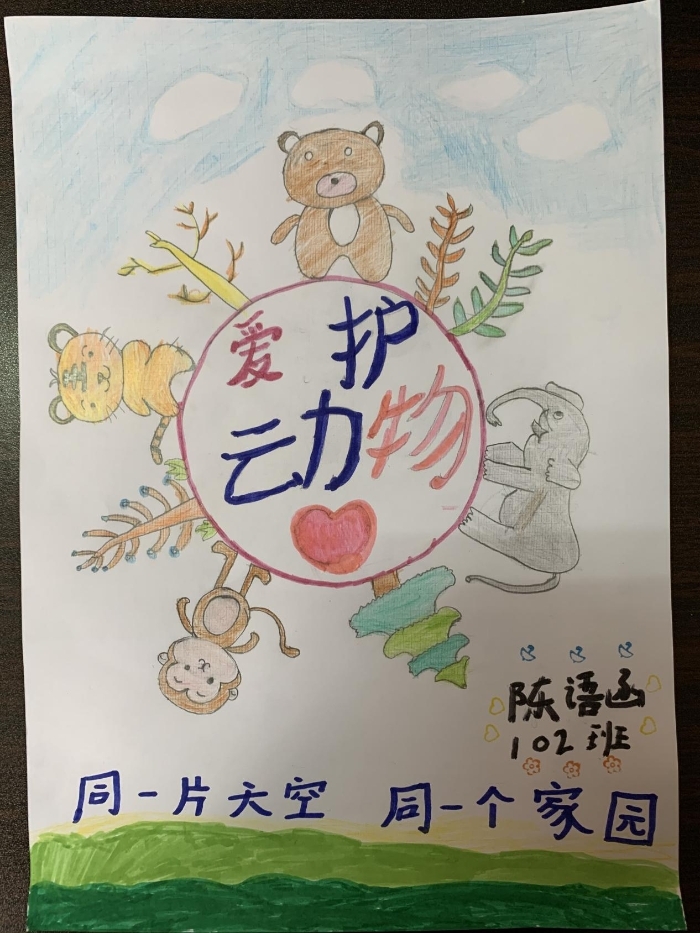 爱护
动物
陈语函
102班
同一片天空 同一个家园